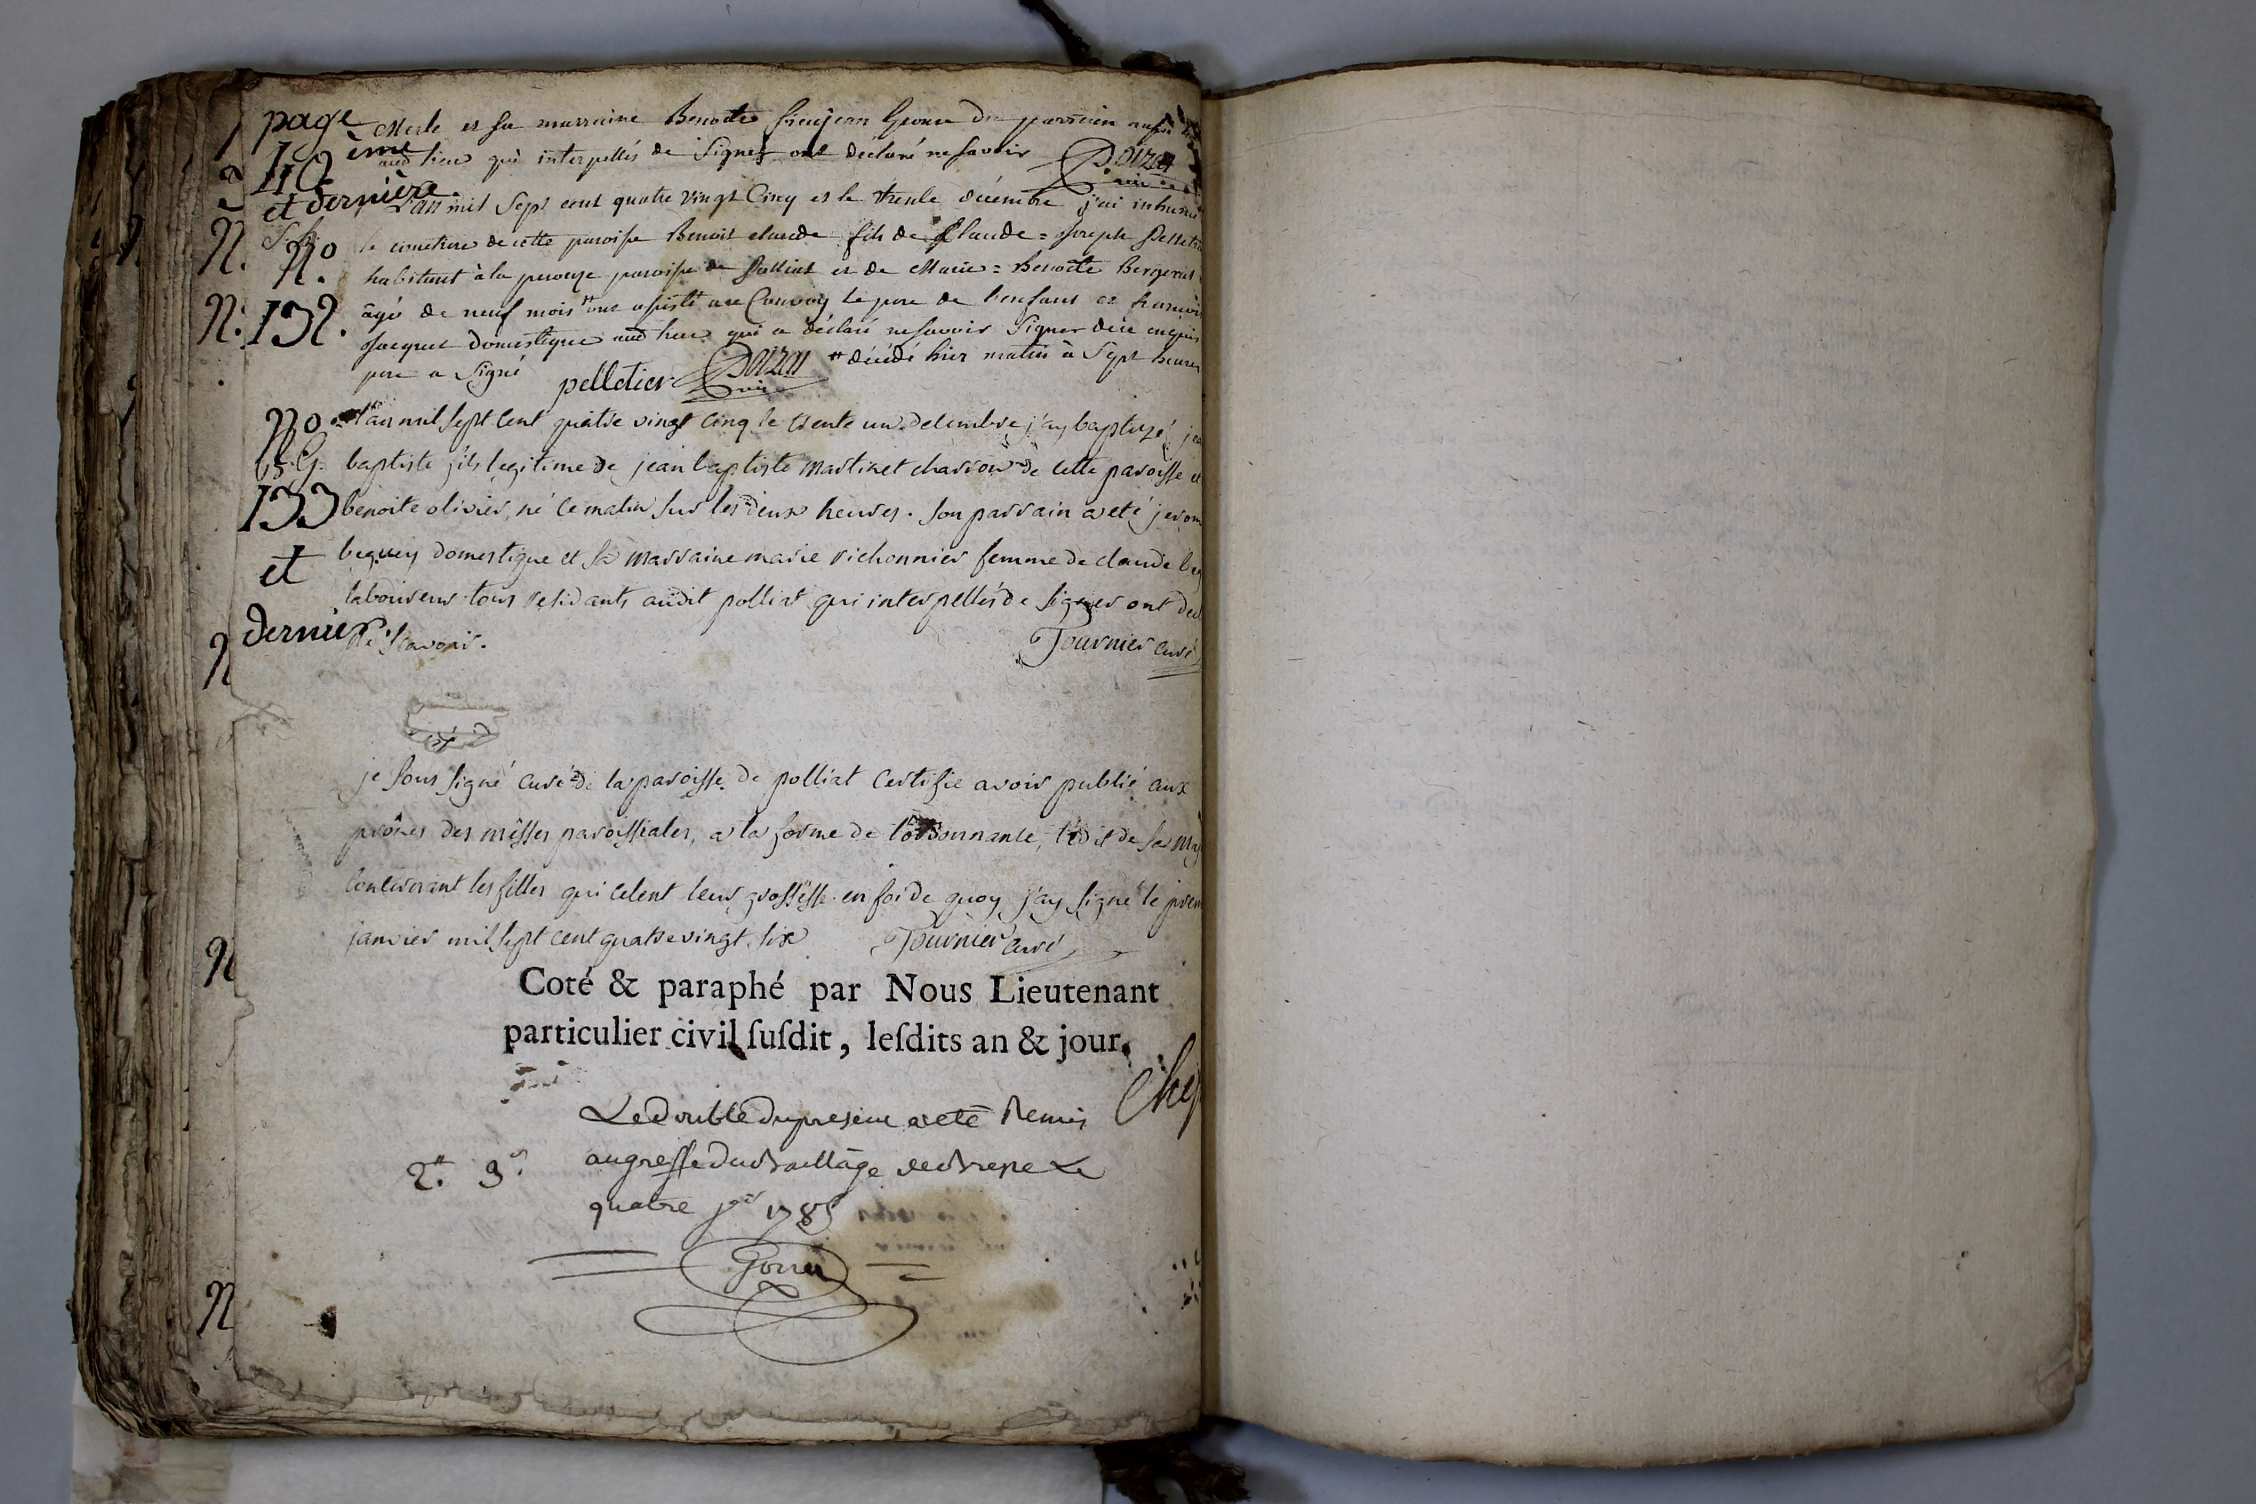 page
110 ème
et dernière
Merle et sa marraine Benoite femme du parrain
aud lieu qui interpellés de Signer ont déclaré ne savoir
L'an mil Sept cent quatre vingt Cinq et le trente décembre j'ai inhumé
le cimetiere de cette paroisse Benoit claude fils de Claude = Joseph Pelletier
No.
habitant à la perouze paroisse de Polliat et de Marie = Benoite
132.
âgé de neuf mois ont assisté au Convoy le pere de l'enfant et françois
Jacquet Domestique aud lieu qui a déclaré ne savoir Signer de ce enquis
pere a Signé pelletier Doizon # décédé hier matin à Sept heures
No
l'an mil sept cent quatre vingt cinq le trente un decembre j'ay baptizé
b. G.
baptiste fils legitime de jean baptiste martinet charron de cette paroisse et
133
benoite olivier, né ce matin sur les deux heures. son parrain a eté
et
bequey domestique et sa marraine marie richonnier femme de claude
laboureur tous residants audit polliat qui interpellés de signer ont
dernier
ne scavoir. Tournier curé
je sous signé curé de la paroisse de polliat certifie avoir publié aux
prônes des mêsses paroissiales, a la forme de l'ordonnance, l'edit de sa
concernant les filles qui celent leur grossesse. en foi de quoy j'ay signé le
janvier mil sept cent quatre vingt six Tournier curé
Coté & paraphé par Nous Lieutenant
particulier civil ſuſdit, leſdits an & jour.
Le double du present a eté Remis
au greffe du Bailliage de Bresse Le
2. 9.
quatre jer 1785